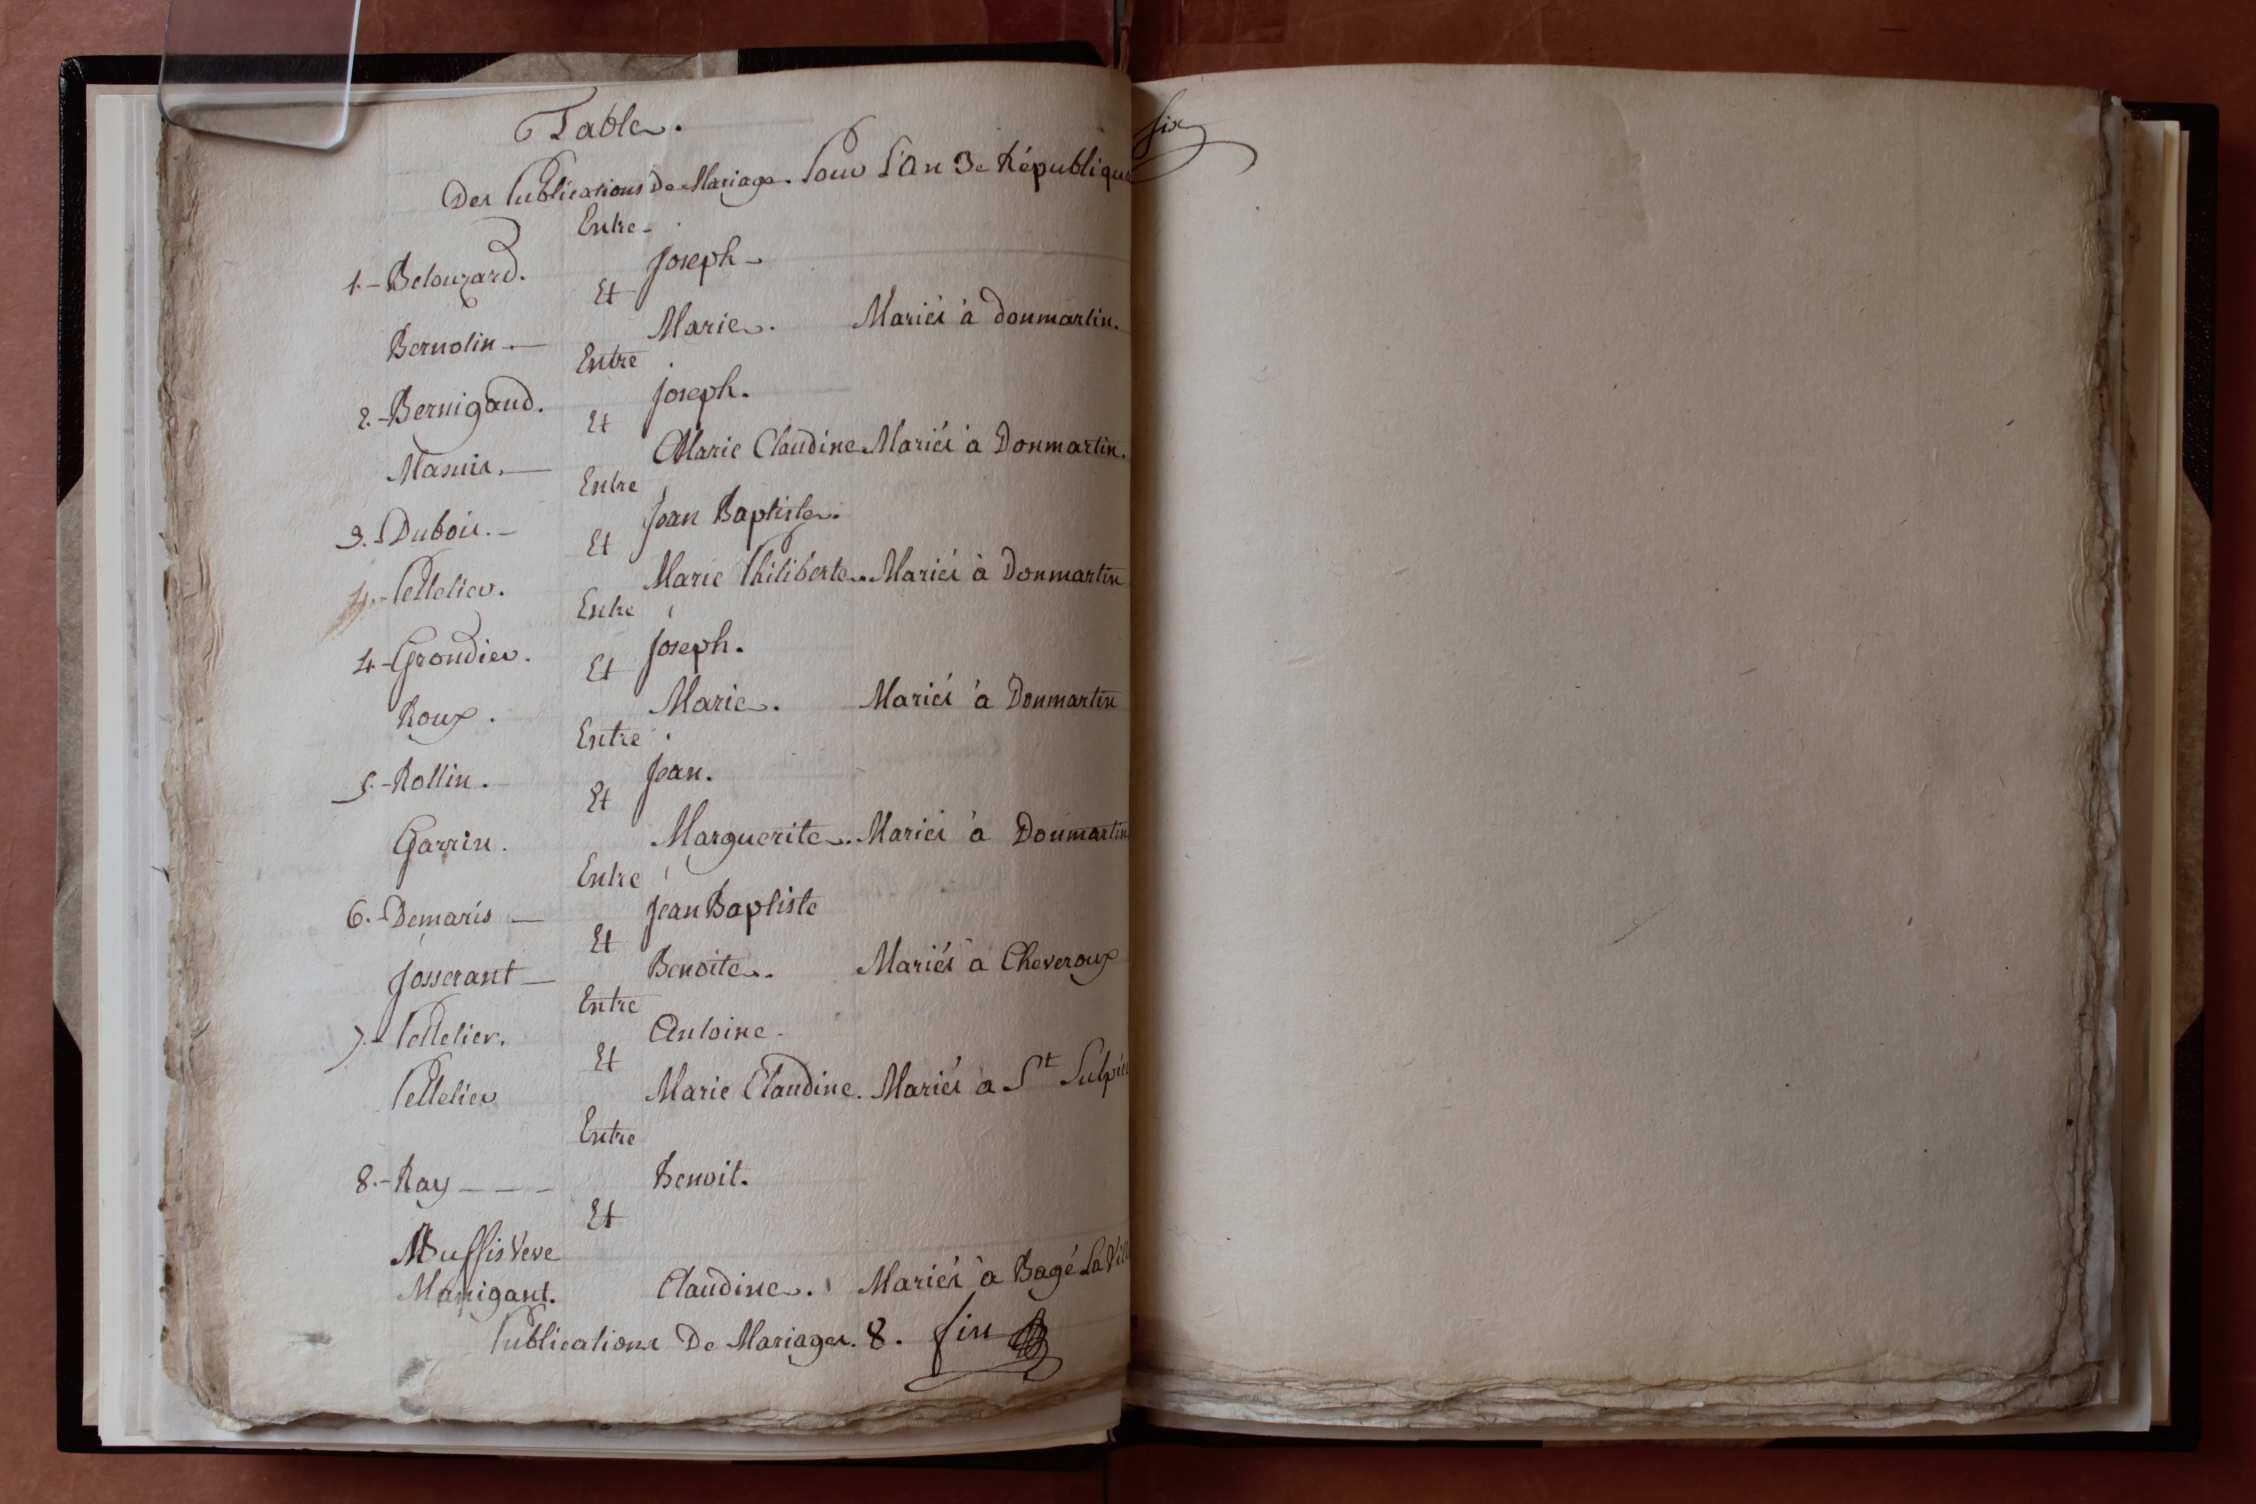 Table.
Des Publications De Mariage. Pour L'An 3e Républiqu
Entre
1. Belouzard. Joseph
Et
Bernolin Marie. Mariés à donmartin.
Entre
2. Bernigaud. Joseph.
Et
Masuis. Marie Claudine Mariés à Donmartin.
Entre
3. Dubois. Jean Baptiste.
Et
Pelletier. Marie Philiberte. Mariés à Donmartin
Entre
4. Grondier. Joseph.
Et
Roux. Marie. Mariés à Donmartin
Entre
5. Rollin. Jean.
Et
Garrin. Marguerite. Mariés à Donmartin
Entre
6. Demaris Jean Baptiste
Et
Josserant Benoite. Mariés à Cheveroux
Entre
7. Pelletier. Antoine
Et
Pelletier Marie Claudine. Mariés à St Sulpic
Entre
8. Ray Benoit.
Et
Buffis Veve
Manigant. Claudine. Mariés à Bagé La Vill
Publications De Mariages. 8. fin
six